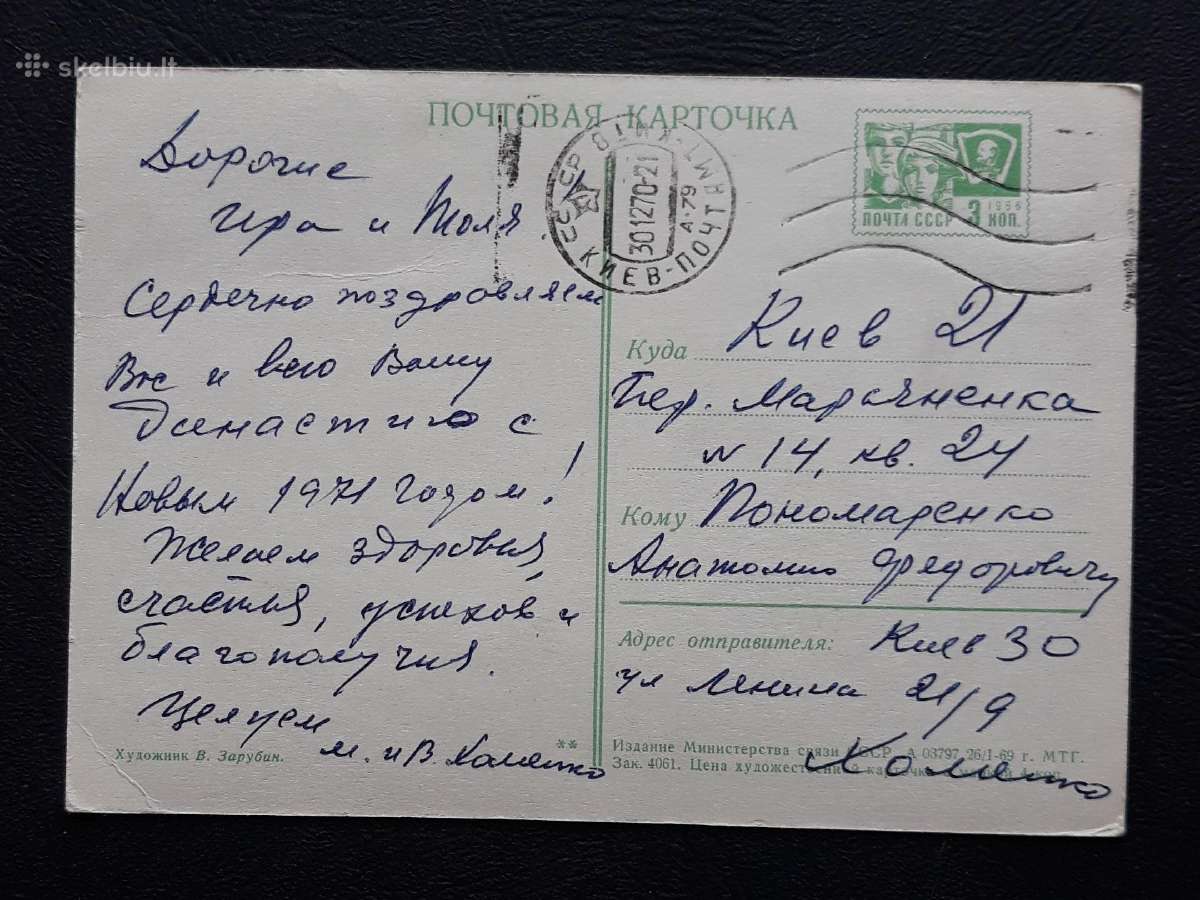 skelbiu.lt
ПОЧТОВАЯ КАРТОЧКА
Дорогие
Ира и Толя
Сердечно поздравляем
Вас и всю Вашу
Династию с
Новым 1971 годом!
Желаем здоровья,
счастья, успехов и
благополучия.
Целуем
м. и В. Хоменко
Художник В. Зарубин.
**
СССР
КИЕВ-ПОЧТАМТ
А-79
301270-21
ПОЧТА СССР 3 КОП.
1966
Куда Киев 21
Пер. Марьяненка
№ 14, кв. 24
Кому Пономаренко
Анатолию Федоровичу
Адрес отправителя: Киев 30
ул Ленина 21/9
Хоменко
Издание Министерства связи СССР. А 03797 26/I-69 г. МТГ.
Зак. 4061. Цена художественной карточки с маркой 4 коп.